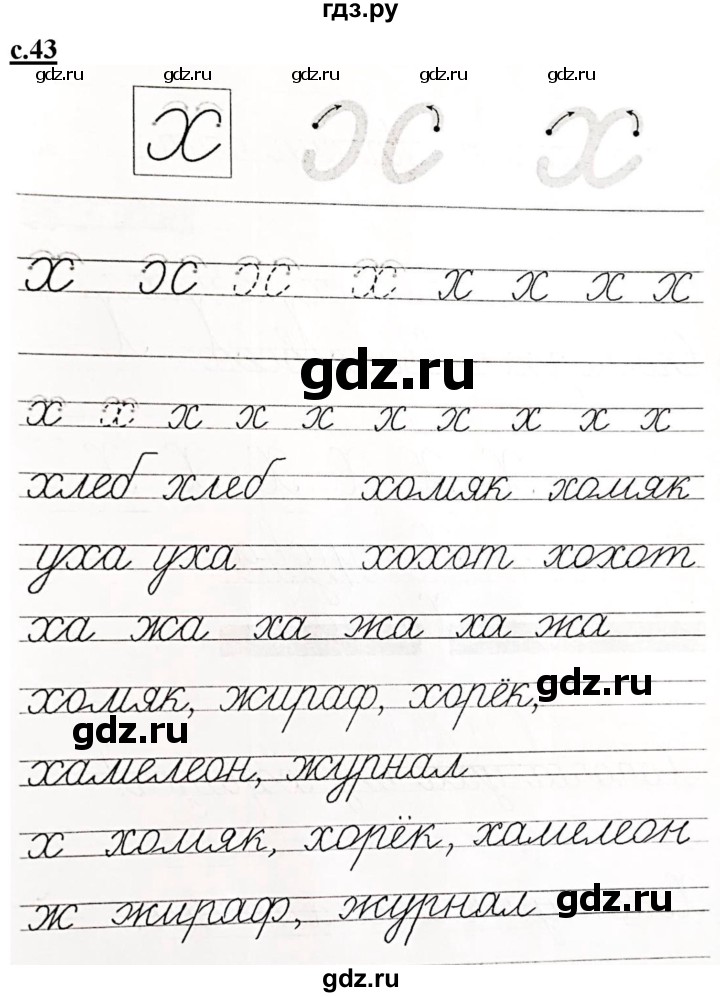 гдз.ру
с.43
gdz.ru gdz.ru gdz.ru gdz.ru gdz.ru
х х х
х х х х х х х х
gdz.ru
х х х х х х х х х х
хлеб хлеб хомяк хомяк
уха уха хохот хохот
ха жа ха жа ха жа
хомяк, жираф, хорёк,
gdz.ru
gdz.ru
хамелеон, журнал
х хомяк, хорёк, хамелеон
ж жираф, журнал
gdz.ru
gdz.ru